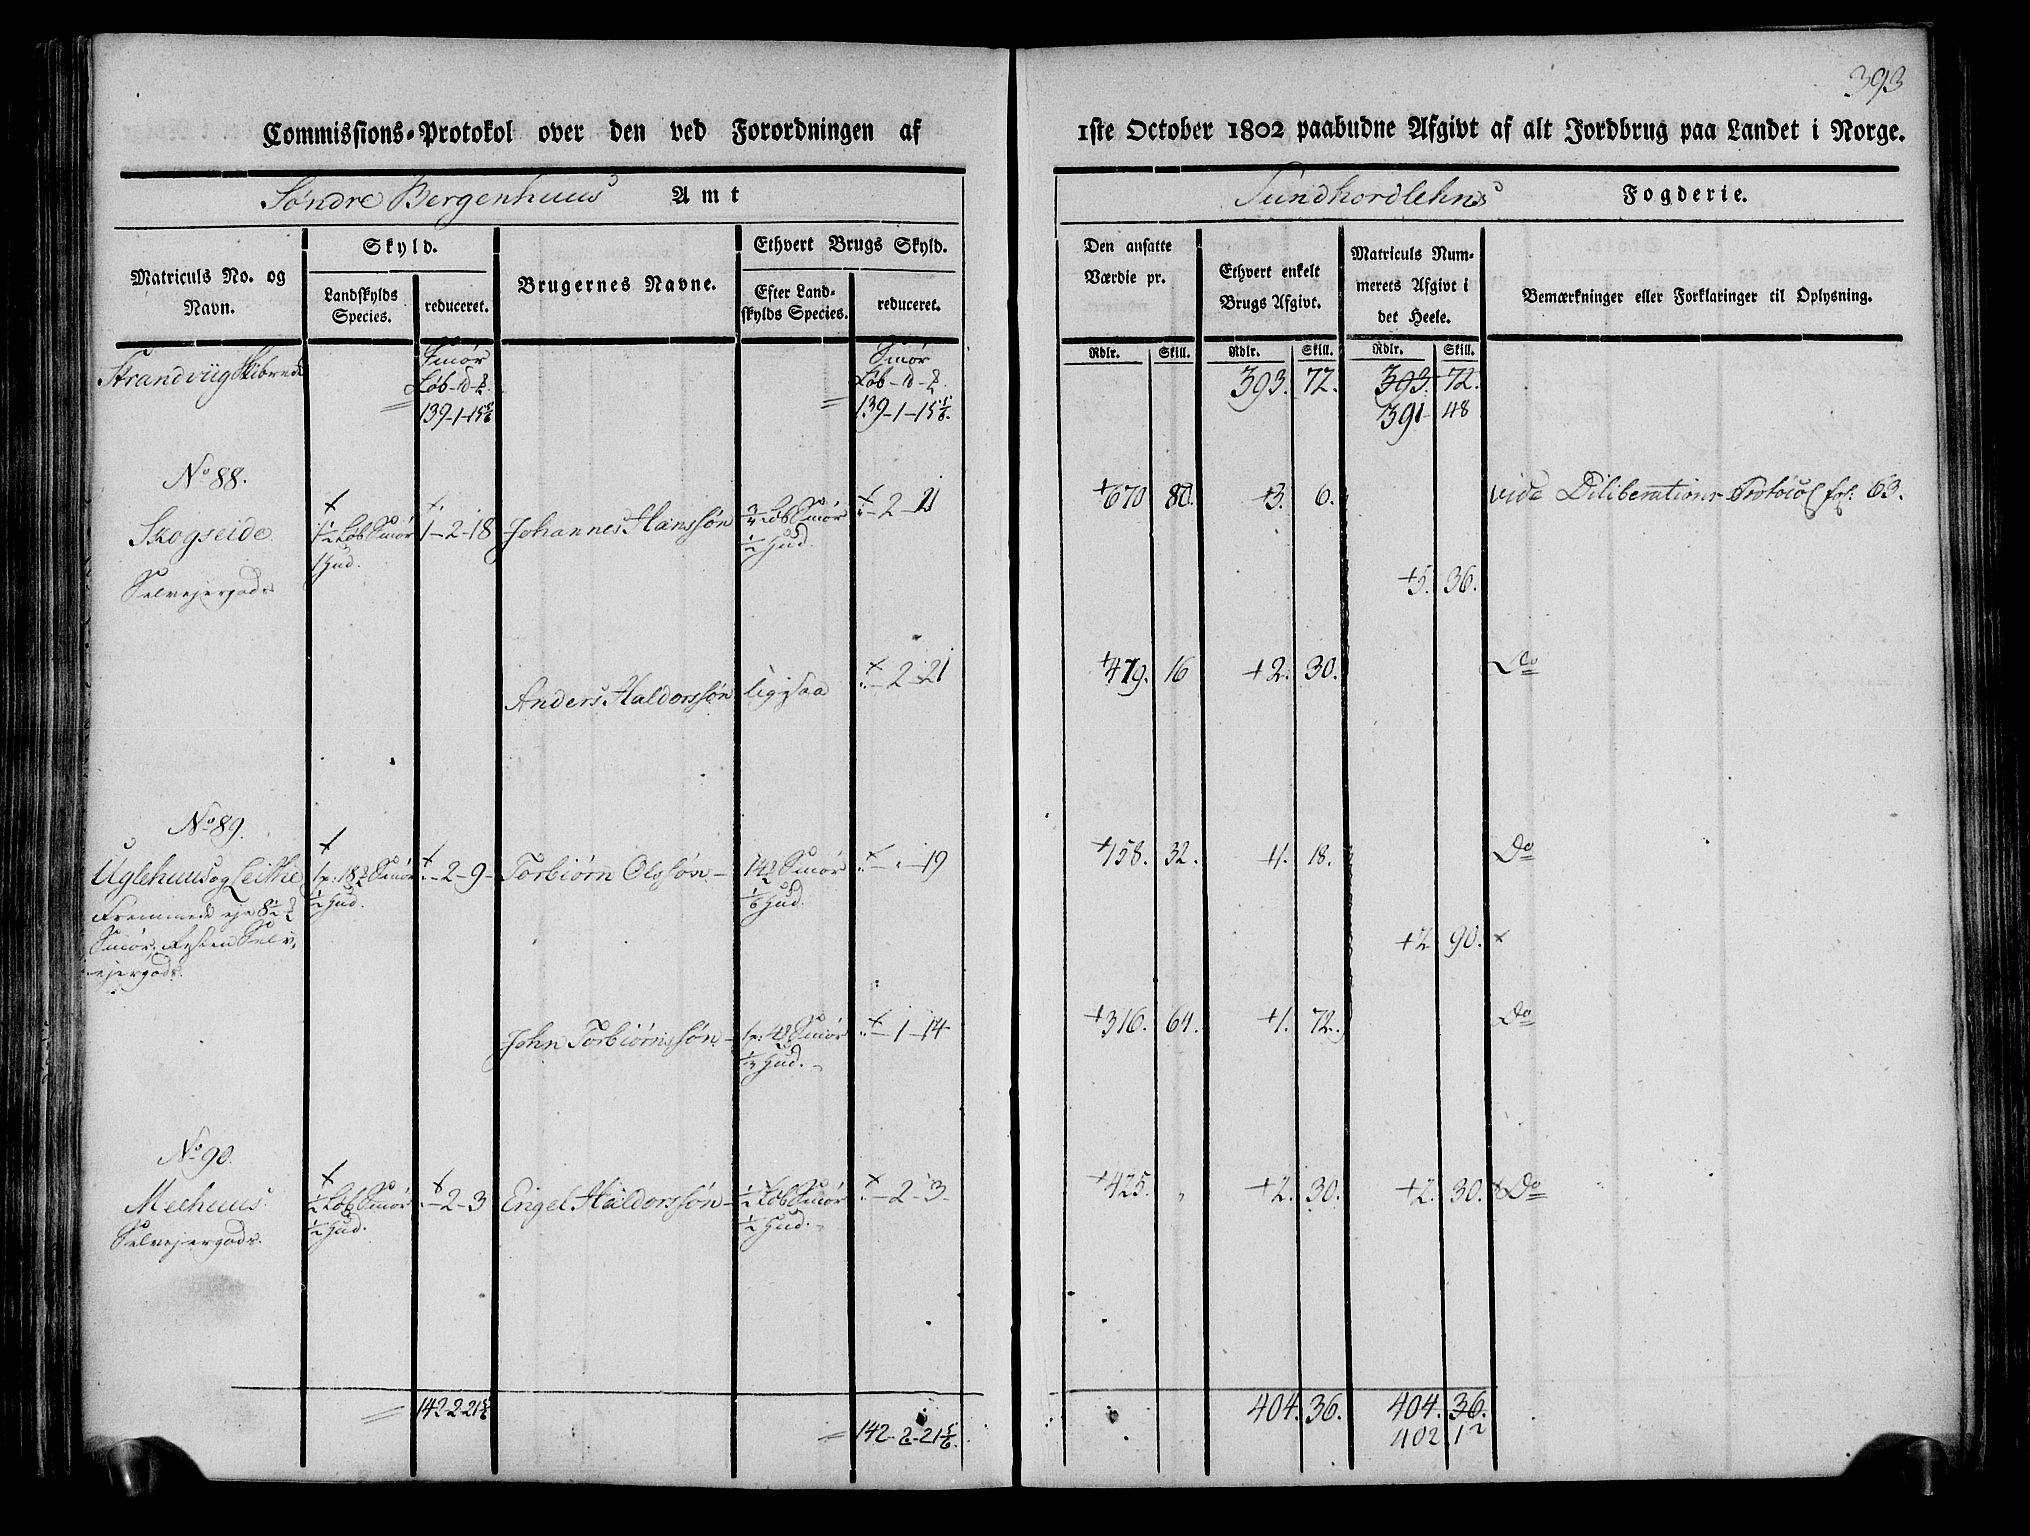 393
Commissions-Protokol over den ved Forordningen af 1ste October 1802 paabudne Afgivt af alt Jordbrug paa Landet i Norge.
Søndre Bergenhuus Amt Sundhordlehns Fogderie.
Matriculs No. og Navn. Skyld. Landskylds Species. reduceret. Brugernes Navne. Ethvert Brugs Skyld. Efter Landskylds Species. reduceret. Den ansatte Værdie pr. Ethvert enkelt Brugs Afgivt. Matriculs Nummerets Afgivt i det Heele. Bemærkninger eller Forklaringer til Oplysning.
Rdlr. Skill. Rdlr. Skill. Rdlr. Skill.
Strandviig Skibrede Smør Smør
Løb - d - Løb - d - 393. 72. 393. 72.
139-1-15 5/6 139-1-15 5/6. 391 48
No 88.
Skogseide 1 1/2 Løb Smør 1-2-18 Johannes Hanssøn 3/4 Løb Smør „-2-21 +670 80. +3. 6. vide Deliberations Protocol fol: 63.
1 Hud. 1/2 Hud.
Selvejergods +5. 36.
Anders Haldorssøn ligesaa „-2-21 +479. 16 +2. 30. Do
No 89.
Uglehuus og Leithe 1 p: 18 Smør „-2-9- Torbiørn Olssøn- 14 1/2 Smør „-„-19 +158. 32. +1. 18. Do
Fremmede eje 8 1/2 1/2 Hud. 1/6 Hud.
Smør, Resten Selv-
ejergods. +2 90. x
John Torbiørnssøn- 1 p: 4 Smør „-1-14 +316. 64. +1. 72. Do
Hud.
No 90.
Meehuus. 1/2 Løb Smør „-2-3 Engel Haldorssøn- 1/2 Løb Smør „-2-3- +425. „ +2. 30. +2. 30. x Do
Selvejergods. 1/2 Hud. 1/2 Hud.
142-2-21 5/6 404. 36. 404. 36.
142-2-21 5/6. 402. 12